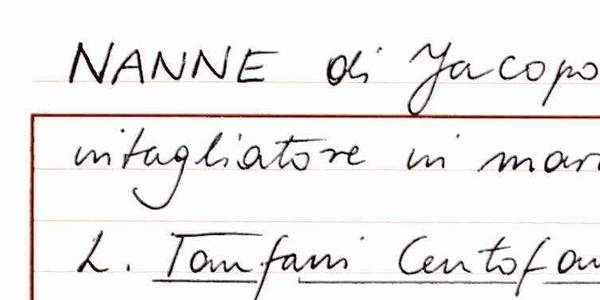 NANNE di Jacopo
intagliatore in mar
L. Tanfani Centofan